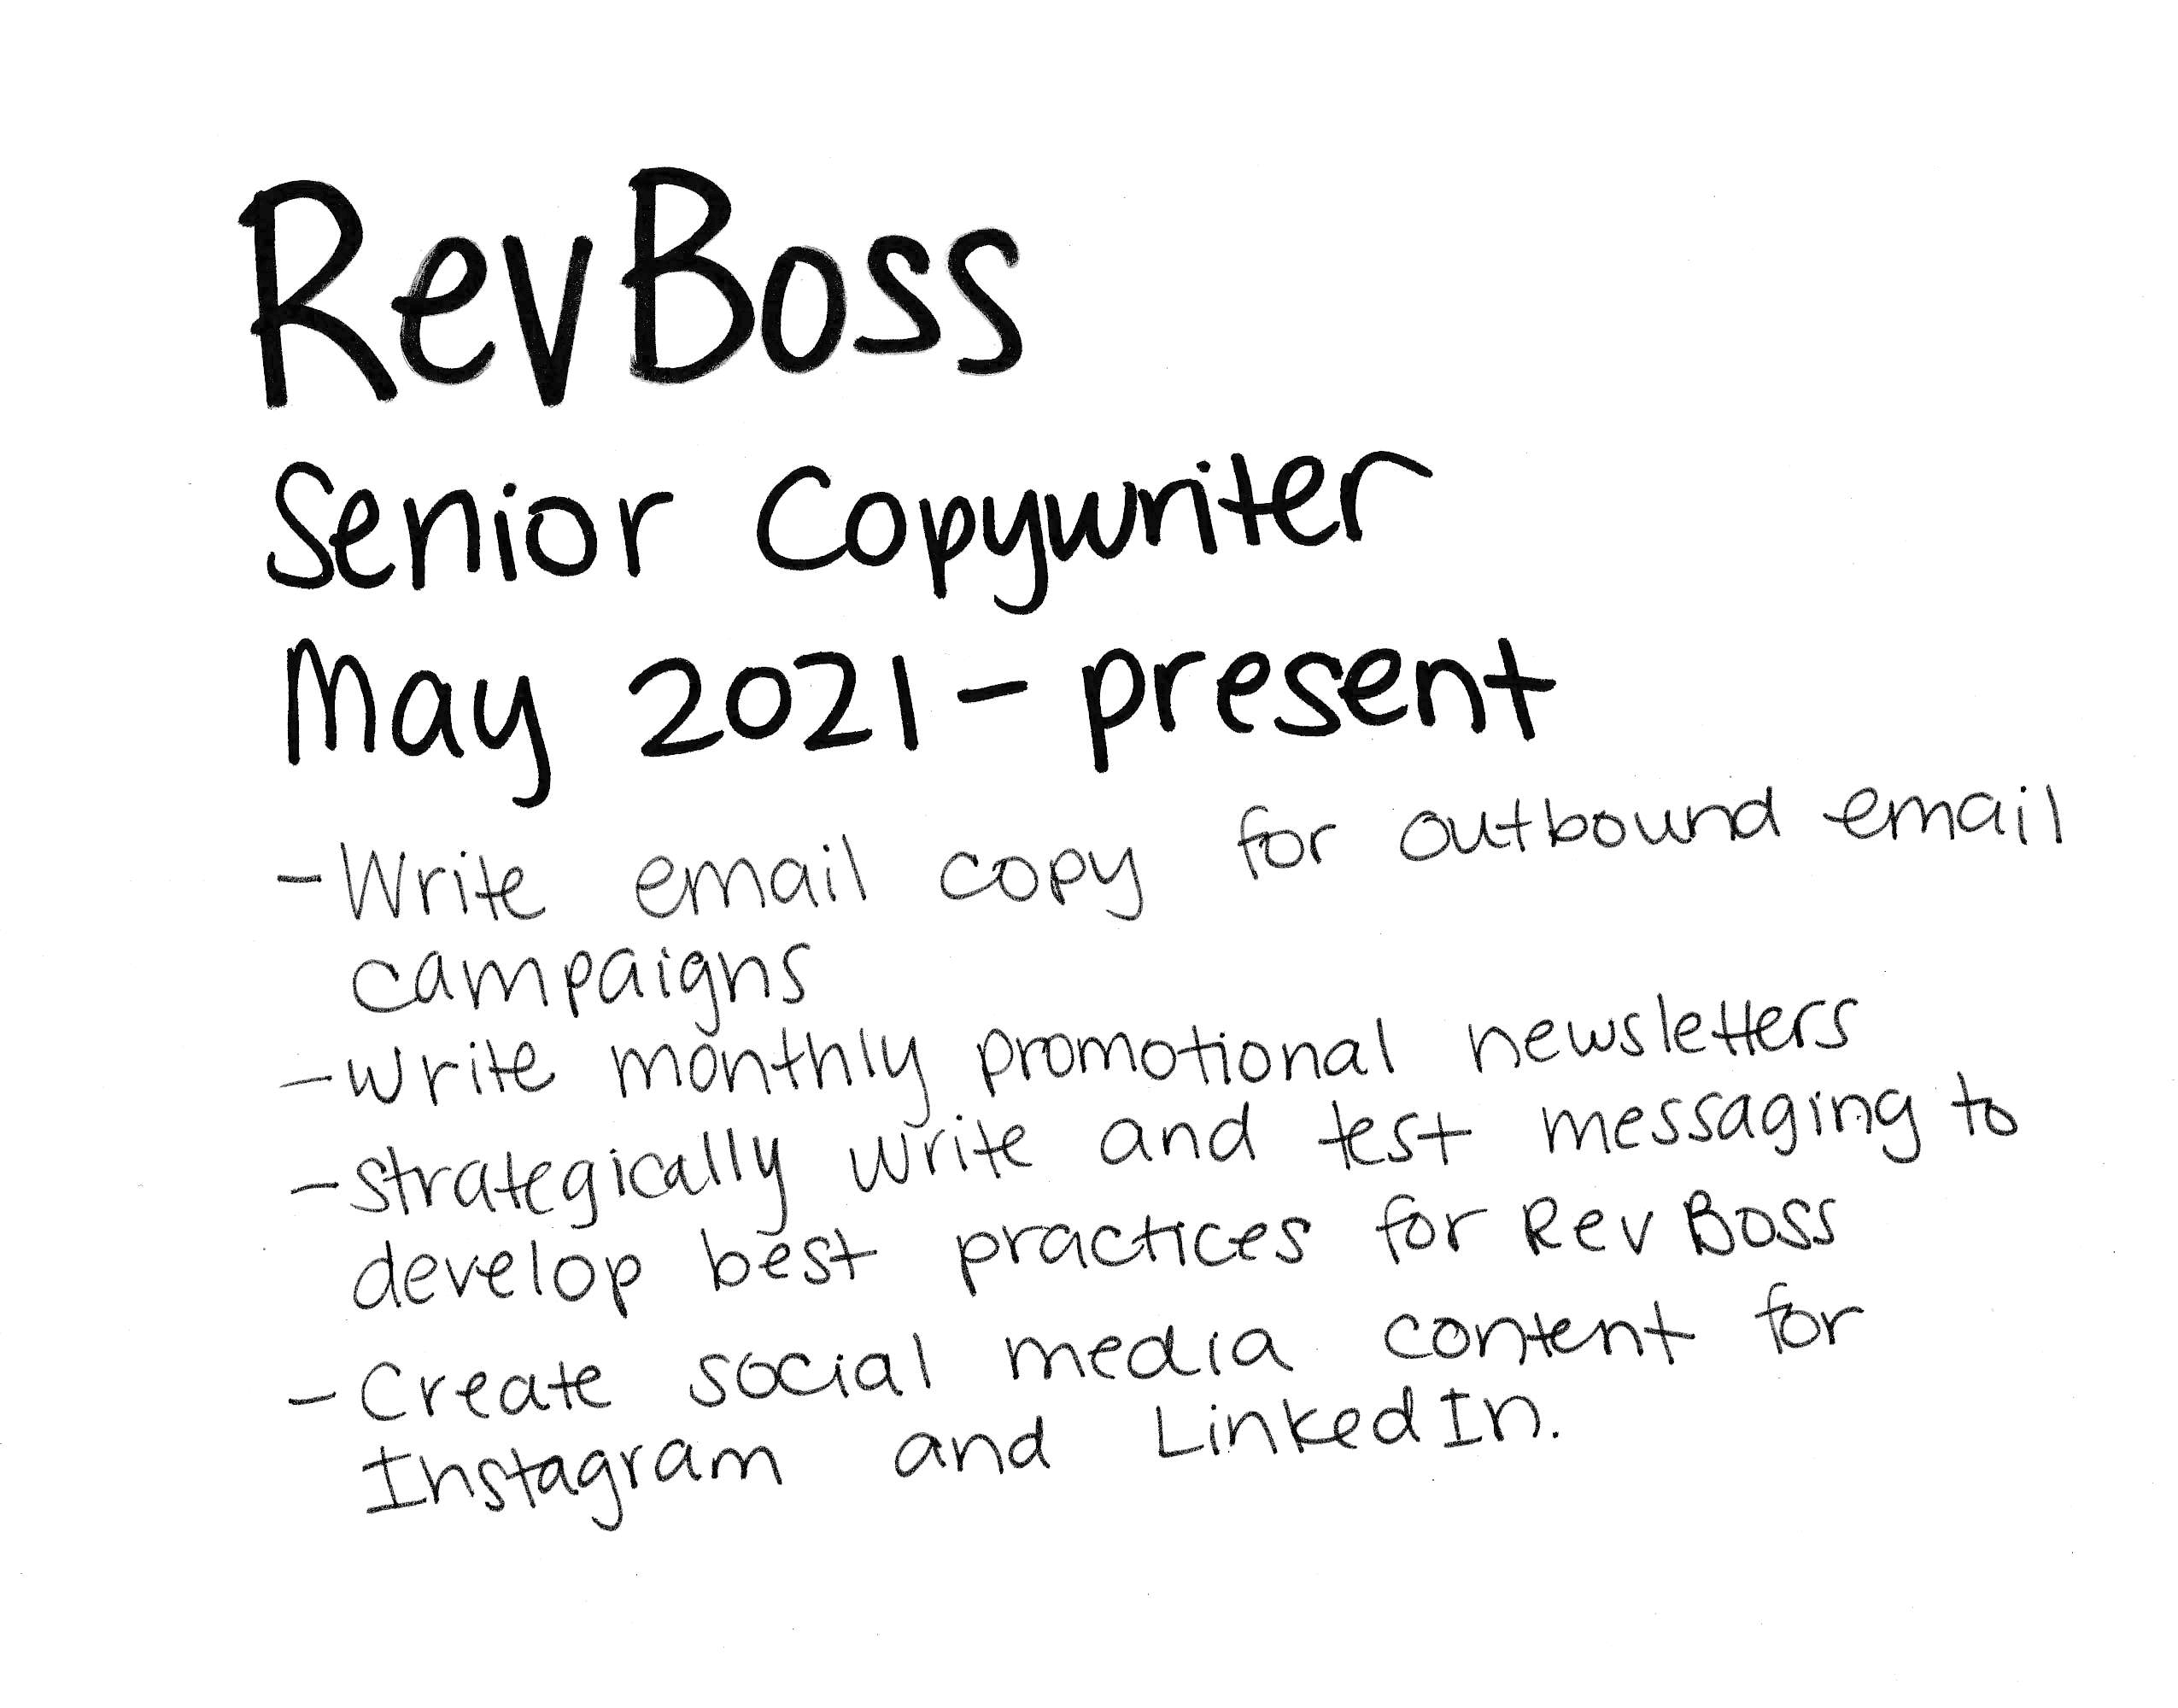 RevBoss
Senior Copywriter
May 2021 - present
- Write email copy for outbound email
campaigns
- Write monthly promotional newsletters
- Strategically write and test messaging to
develop best practices for RevBoss
- Create social media content for
Instagram and LinkedIn.